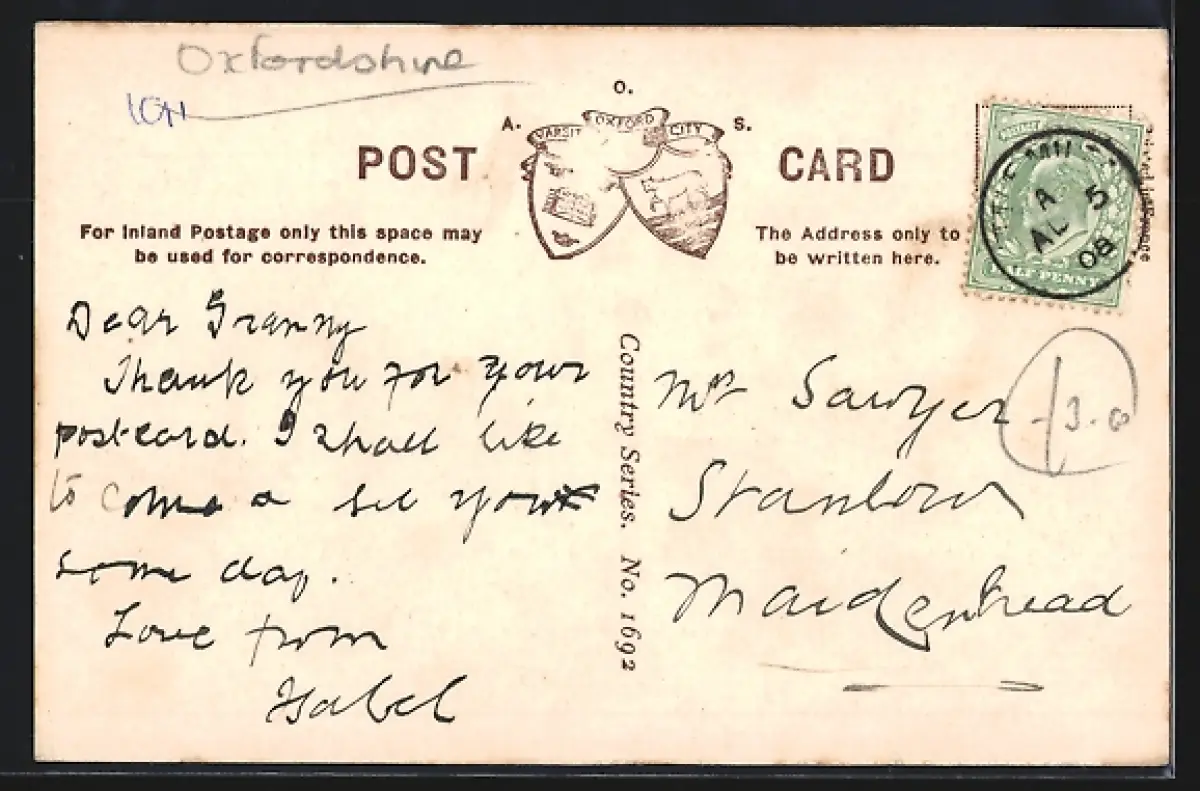 Oxfordshire
O.
A. VARSITY OXFORD CITY S.
POST CARD
For Inland Postage only this space may
be used for correspondence.
The Address only to
be written here.
HALF PENNY
A 5
08
Dear Granny
Thank you for your
postcard. I shall like
to come a see you
some day.
Love from
Isabel
Country Series. No. 1692
Mrs Sawyer
Stanlow
Maidenhead